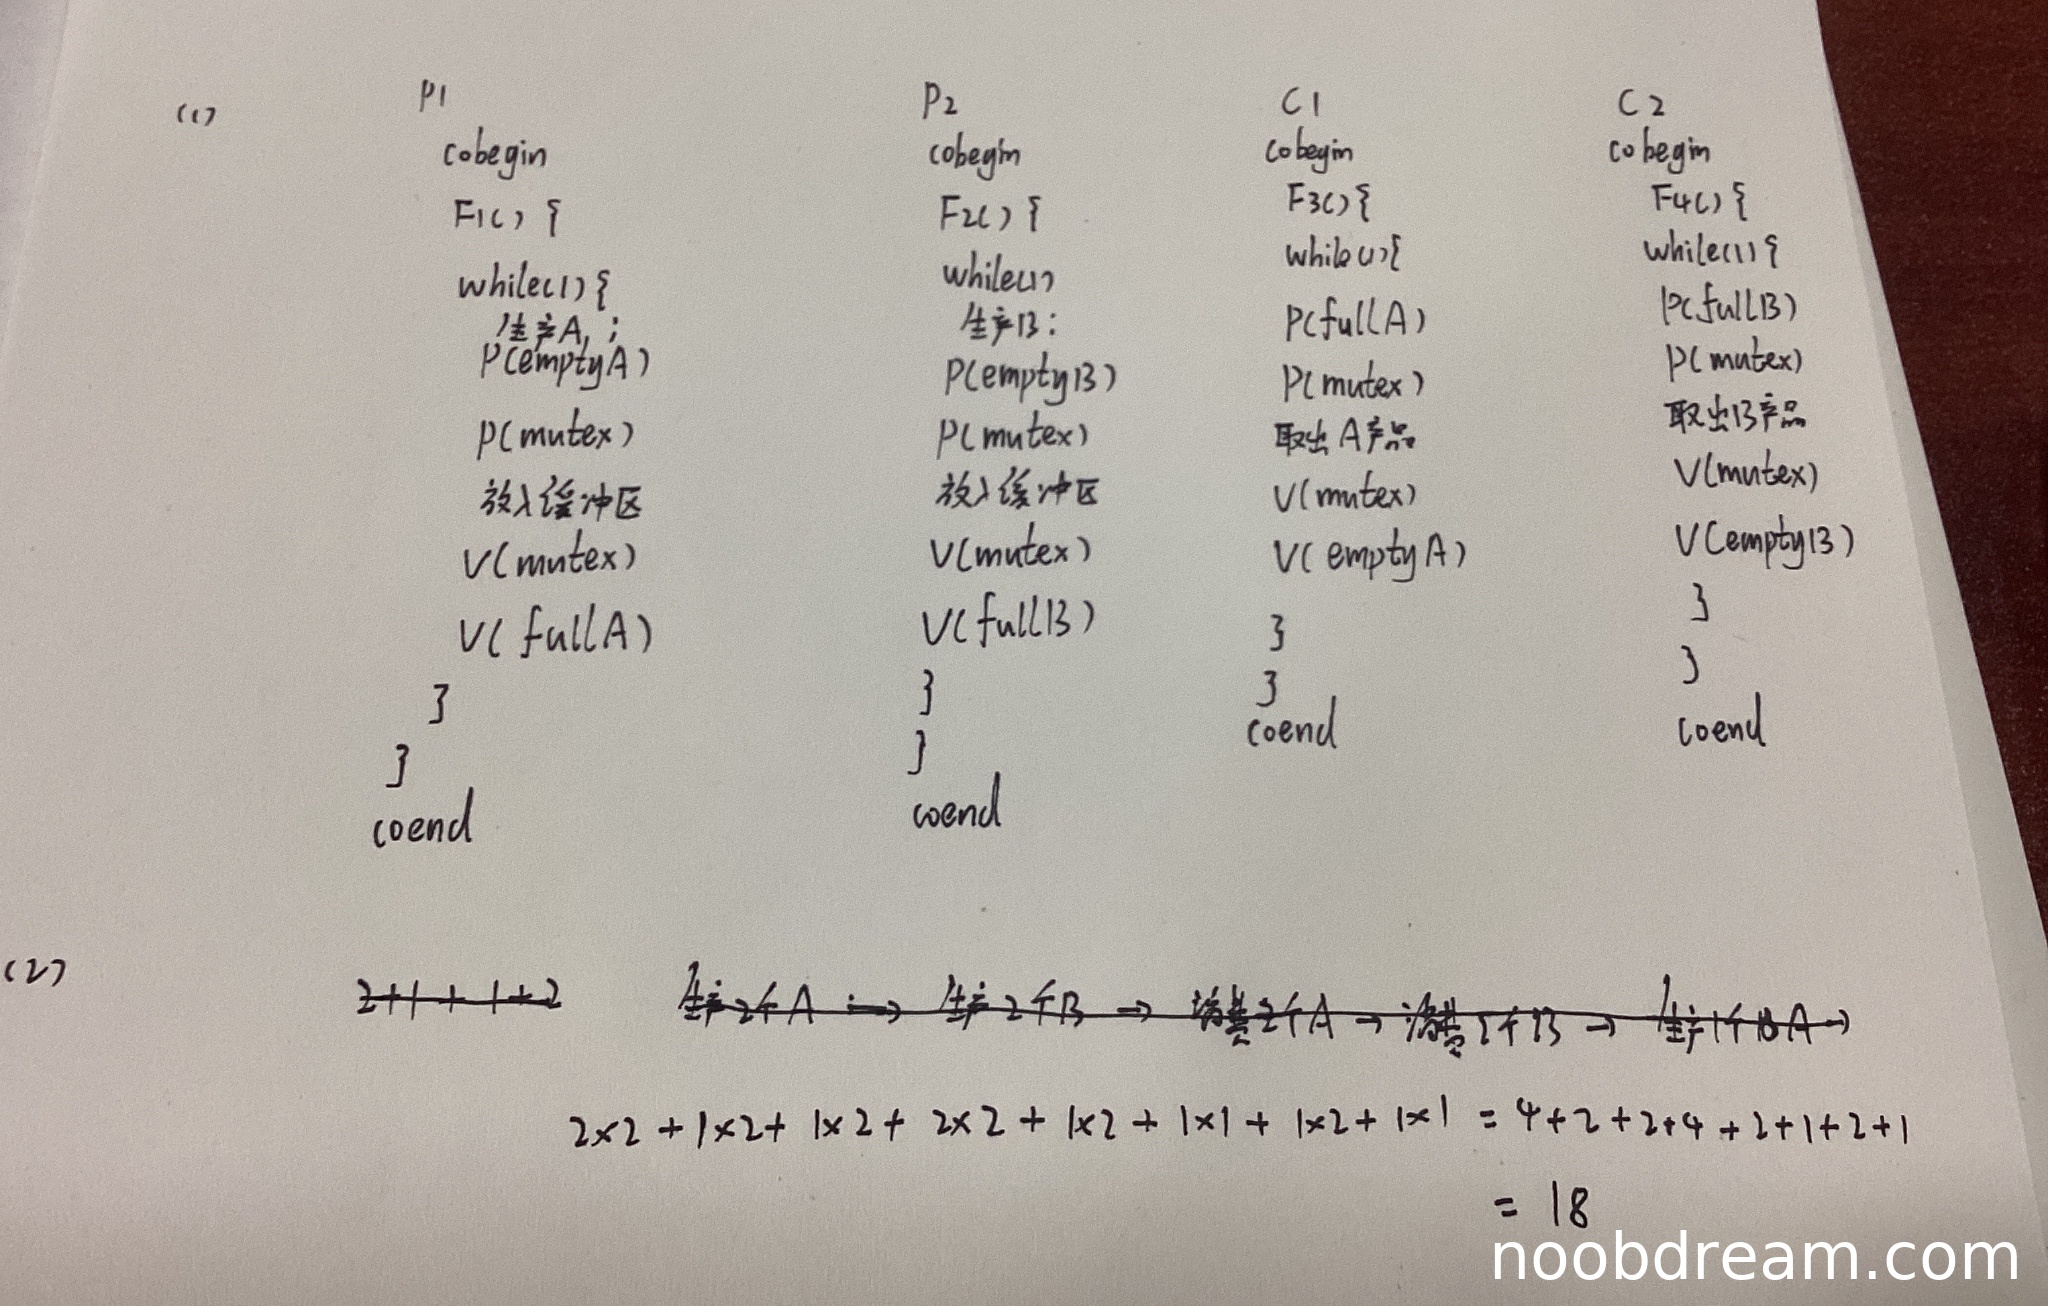 (1)
P1
cobegin
F1() {
while(1) {
生产A ;
P(emptyA)
P(mutex)
放入缓冲区
V(mutex)
V(fullA)
}
}
coend
P2
cobegin
F2() {
while(1)
生产B ;
P(emptyB)
P(mutex)
放入缓冲区
V(mutex)
V(fullB)
}
}
coend
C1
cobegin
F3() {
while(1) {
P(fullA)
P(mutex)
取出A产品
V(mutex)
V(emptyA)
}
}
coend
C2
cobegin
F4() {
while(1) {
P(fullB)
P(mutex)
取出B产品
V(mutex)
V(emptyB)
}
}
coend
(2)
2+1+1+2 生产2个A → 生产2个B → 消费2个A → 消费 个B → 生产1个 A →
2×2 + 1×2 + 1×2 + 2×2 + 1×2 + 1×1 + 1×2 + 1×1 = 4+2+2+4+2+1+2+1
= 18
noobdream.com